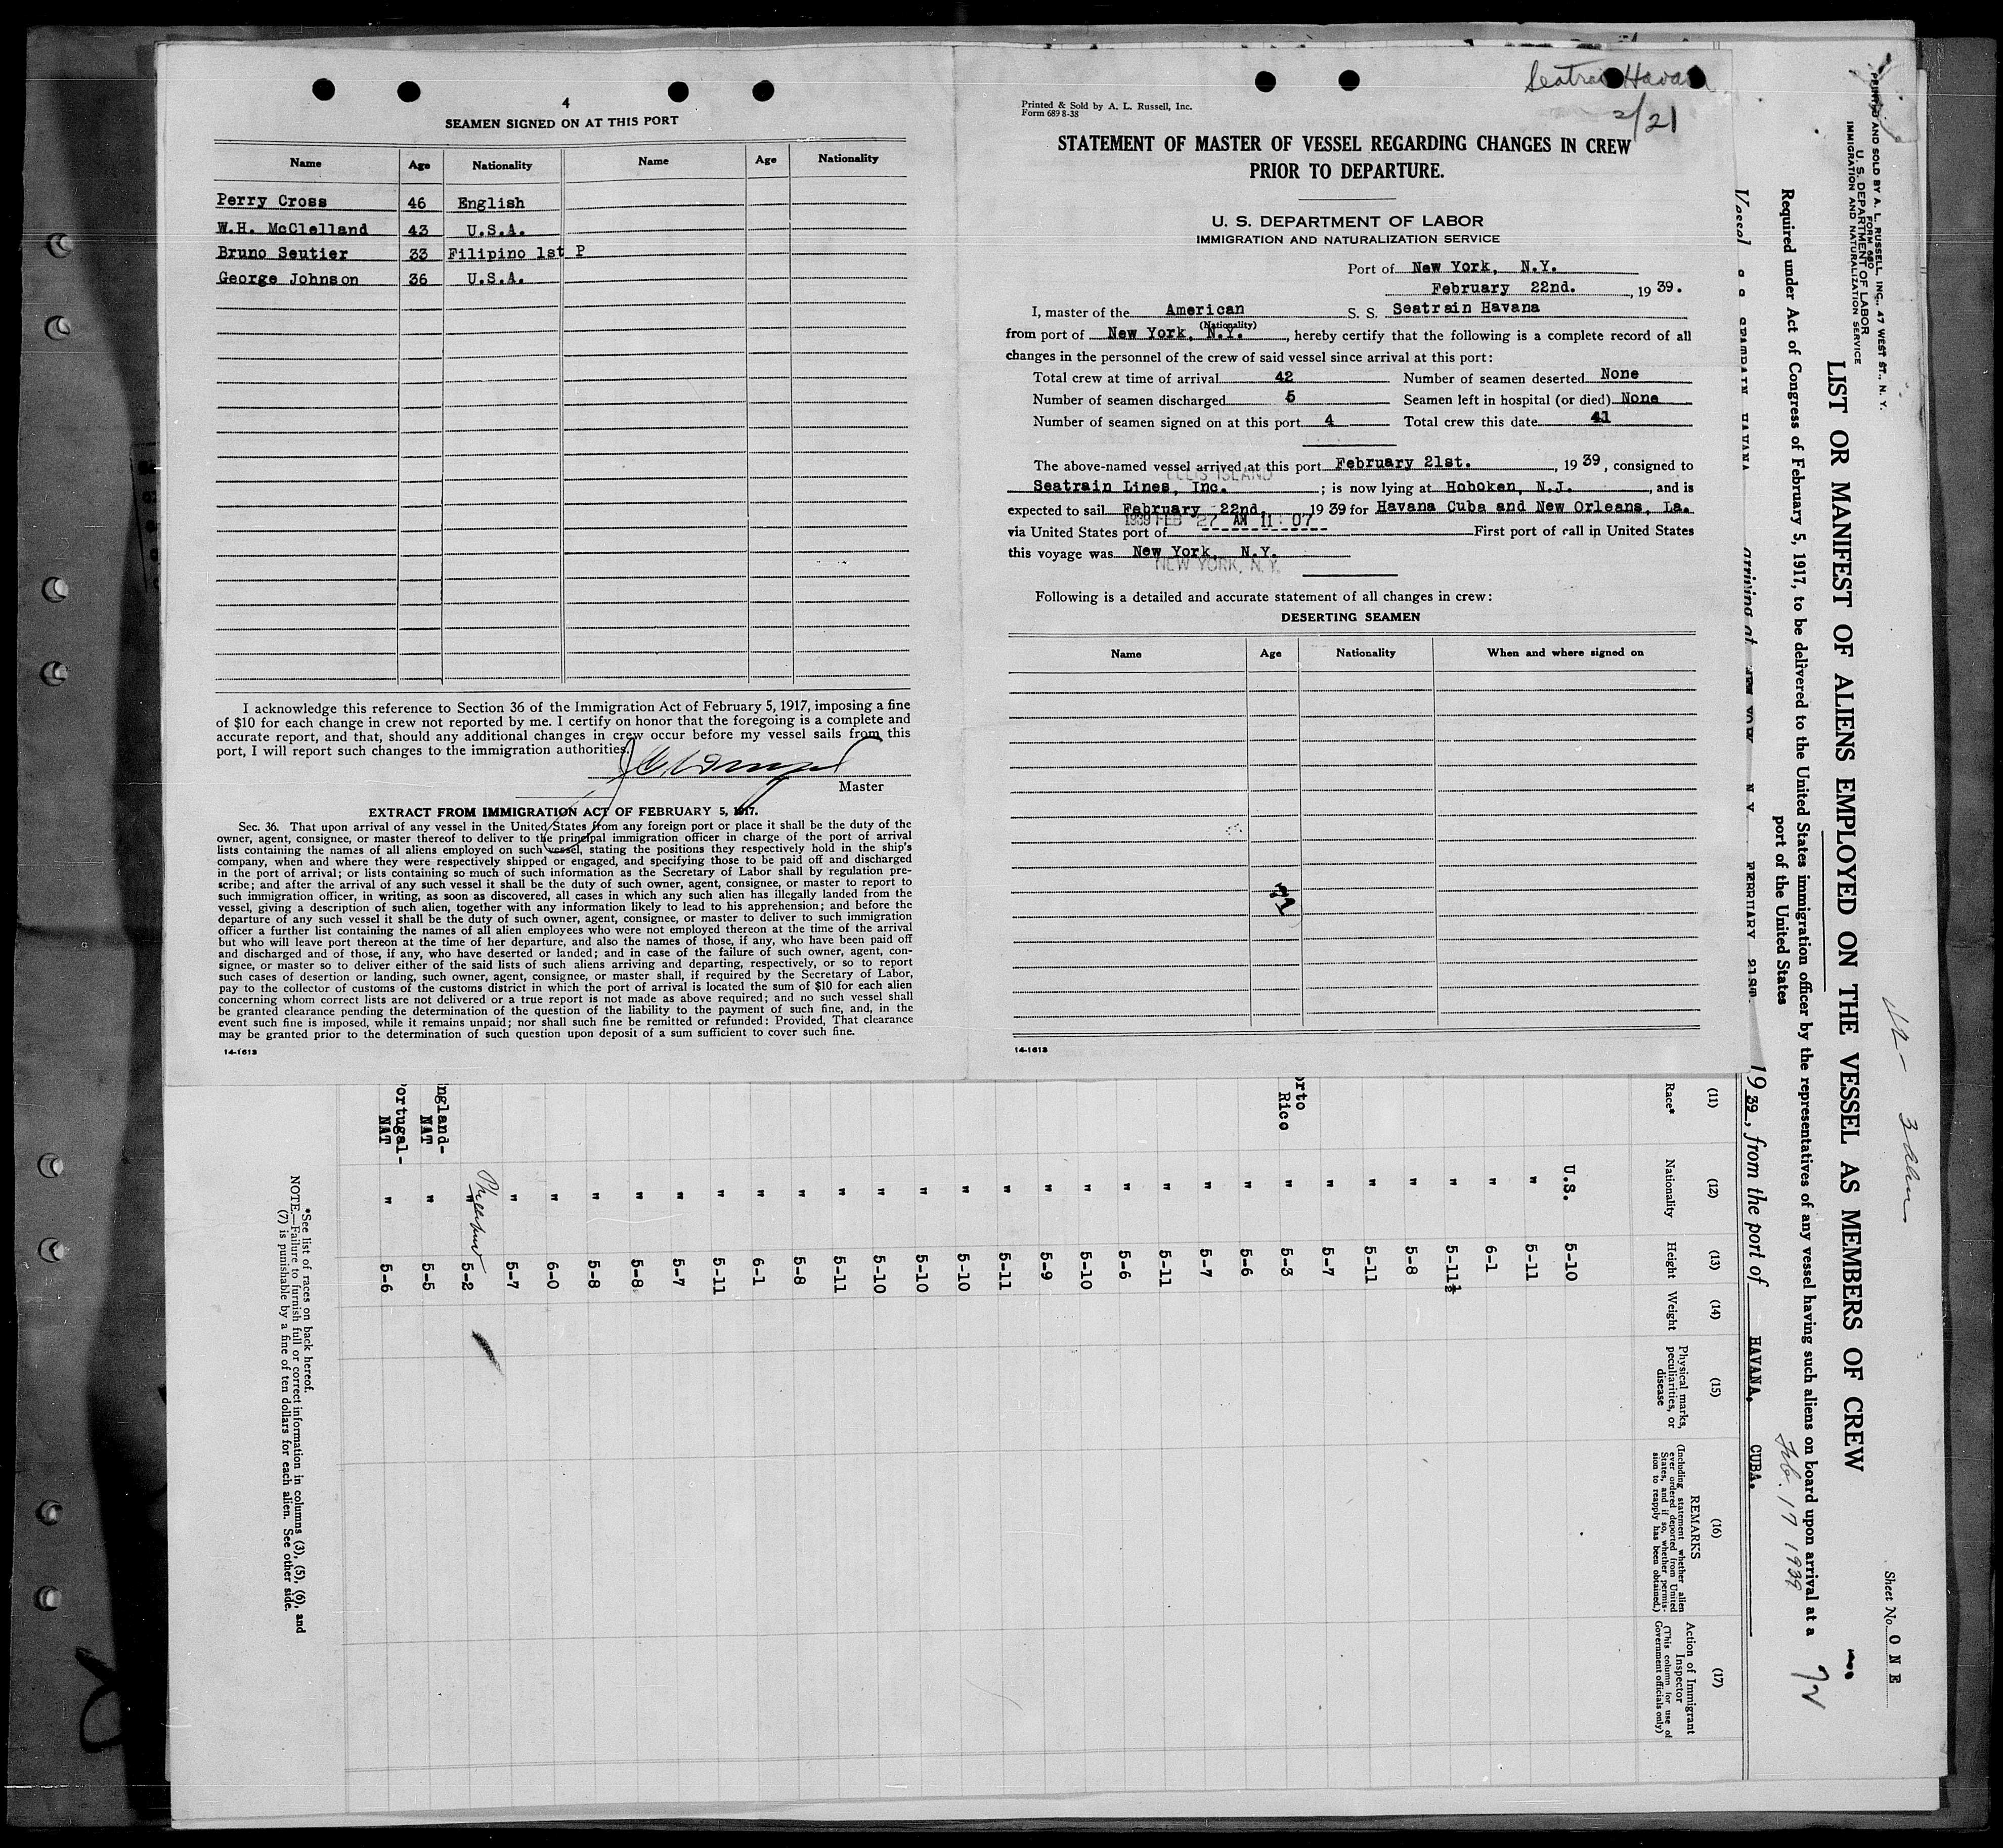 4
SEAMEN SIGNED ON AT THIS PORT
Name Age Nationality Name Age Nationality
Perry Cross 46 English
W.H. McClelland 43 U.S.A.
Bruno Seutier 33 Filipino 1st P
George Johnson 36 U.S.A.
I acknowledge this reference to Section 36 of the Immigration Act of February 5, 1917, imposing a fine
of $10 for each change in crew not reported by me. I certify on honor that the foregoing is a complete and
accurate report, and that, should any additional changes in crew occur before my vessel sails from this
port, I will report such changes to the immigration authorities.
Master
EXTRACT FROM IMMIGRATION ACT OF FEBRUARY 5, 1917.
Sec. 36. That upon arrival of any vessel in the United States from any foreign port or place it shall be the duty of the
owner, agent, consignee, or master thereof to deliver to the principal immigration officer in charge of the port of arrival
lists containing the names of all aliens employed on such vessel, stating the positions they respectively hold in the ship's
company, when and where they were respectively shipped or engaged, and specifying those to be paid off and discharged
in the port of arrival; or lists containing so much of such information as the Secretary of Labor shall by regulation pre-
scribe; and after the arrival of any such vessel it shall be the duty of such owner, agent, consignee, or master to report to
such immigration officer, in writing, as soon as discovered, all cases in which any such alien has illegally landed from the
vessel, giving a description of such alien, together with any information likely to lead to his apprehension; and before the
departure of any such vessel it shall be the duty of such owner, agent, consignee, or master to deliver to such immigration
officer a further list containing the names of all alien employees who were not employed thereon at the time of the arrival
but who will leave port thereon at the time of her departure, and also the names of those, if any, who have been paid off
and discharged and of those, if any, who have deserted or landed; and in case of the failure of such owner, agent, con-
signee, or master so to deliver either of the said lists of such aliens arriving and departing, respectively, or so to report
such cases of desertion or landing, such owner, agent, consignee, or master shall, if required by the Secretary of Labor,
pay to the collector of customs of the customs district in which the port of arrival is located the sum of $10 for each alien
concerning whom correct lists are not delivered or a true report is not made as above required; and no such vessel shall
be granted clearance pending the determination of the question of the liability to the payment of such fine, and, in the
event such fine is imposed, while it remains unpaid; nor shall such fine be remitted or refunded: Provided, That clearance
may be granted prior to the determination of such question upon deposit of a sum sufficient to cover such fine.
14-1613
Seatrain Havana
2/21
Printed & Sold by A. L. Russell, Inc.
Form 689 8-38
STATEMENT OF MASTER OF VESSEL REGARDING CHANGES IN CREW
PRIOR TO DEPARTURE.
U. S. DEPARTMENT OF LABOR
IMMIGRATION AND NATURALIZATION SERVICE
Port of New York, N.Y.
February 22nd. , 19 39.
I, master of the American S. S. Seatrain Havana
(Nationality)
from port of New York, N.Y. , hereby certify that the following is a complete record of all
changes in the personnel of the crew of said vessel since arrival at this port:
Total crew at time of arrival 42 Number of seamen deserted None
Number of seamen discharged 5 Seamen left in hospital (or died) None
Number of seamen signed on at this port 4 Total crew this date 41
The above-named vessel arrived at this port February 21st. , 19 39, consigned to
ELLIS ISLAND
Seatrain Lines, Inc. ; is now lying at Hoboken, N.J. , and is
expected to sail February 22nd. 19 39 for Havana Cuba and New Orleans, La.
1939 FEB 27 AM 11:07
via United States port of First port of call in United States
this voyage was New York, N.Y.
NEW YORK, N.Y.
Following is a detailed and accurate statement of all changes in crew:
DESERTING SEAMEN
Name Age Nationality When and where signed on
14-1613
PRINTED AND SOLD BY A. L. RUSSELL, INC., 47 WEST ST., N. Y.
FORM 680
U. S. DEPARTMENT OF LABOR
IMMIGRATION AND NATURALIZATION SERVICE
Sheet No. ONE
LIST OR MANIFEST OF ALIENS EMPLOYED ON THE VESSEL AS MEMBERS OF CREW
Required under Act of Congress of February 5, 1917, to be delivered to the United States immigration officer by the representatives of any vessel having such aliens on board upon arrival at a
port of the United States
Feb. 17 1939
72
Vessel S S SEATRAIN HAVANA arriving at NEW YORK N Y FEBRUARY 21ST. 19 39, from the port of HAVANA, CUBA.
(11) (12) (13) (14) (15) (16) (17)
Race* Nationality Height Weight Physical marks, peculiarities, or disease REMARKS (Including statement whether alien ever ordered deported from United States, and if so, whether permission to reapply has been obtained.) Action of Immigrant Inspector (This column for use of Government officials only)
U.S. 5-10
" 5-11
" 6-1
" 5-11½
" 5-8
" 5-11
" 5-7
orto Rico " 5-3
" 5-6
" 5-7
" 5-11
" 5-6
" 5-10
" 5-9
" 5-11
" 5-10
" 5-10
" 5-10
" 5-11
" 5-8
" 6-1
" 5-11
" 5-7
" 5-8
" 5-8
" 6-0
" 5-7
" 5-2
ngland- NAT " 5-5
ortugal- NAT " 5-6
*See list of races on back hereof.
NOTE.—Failure to furnish full or correct information in columns (3), (5), (6), and
(7) is punishable by a fine of ten dollars for each alien. See other side.